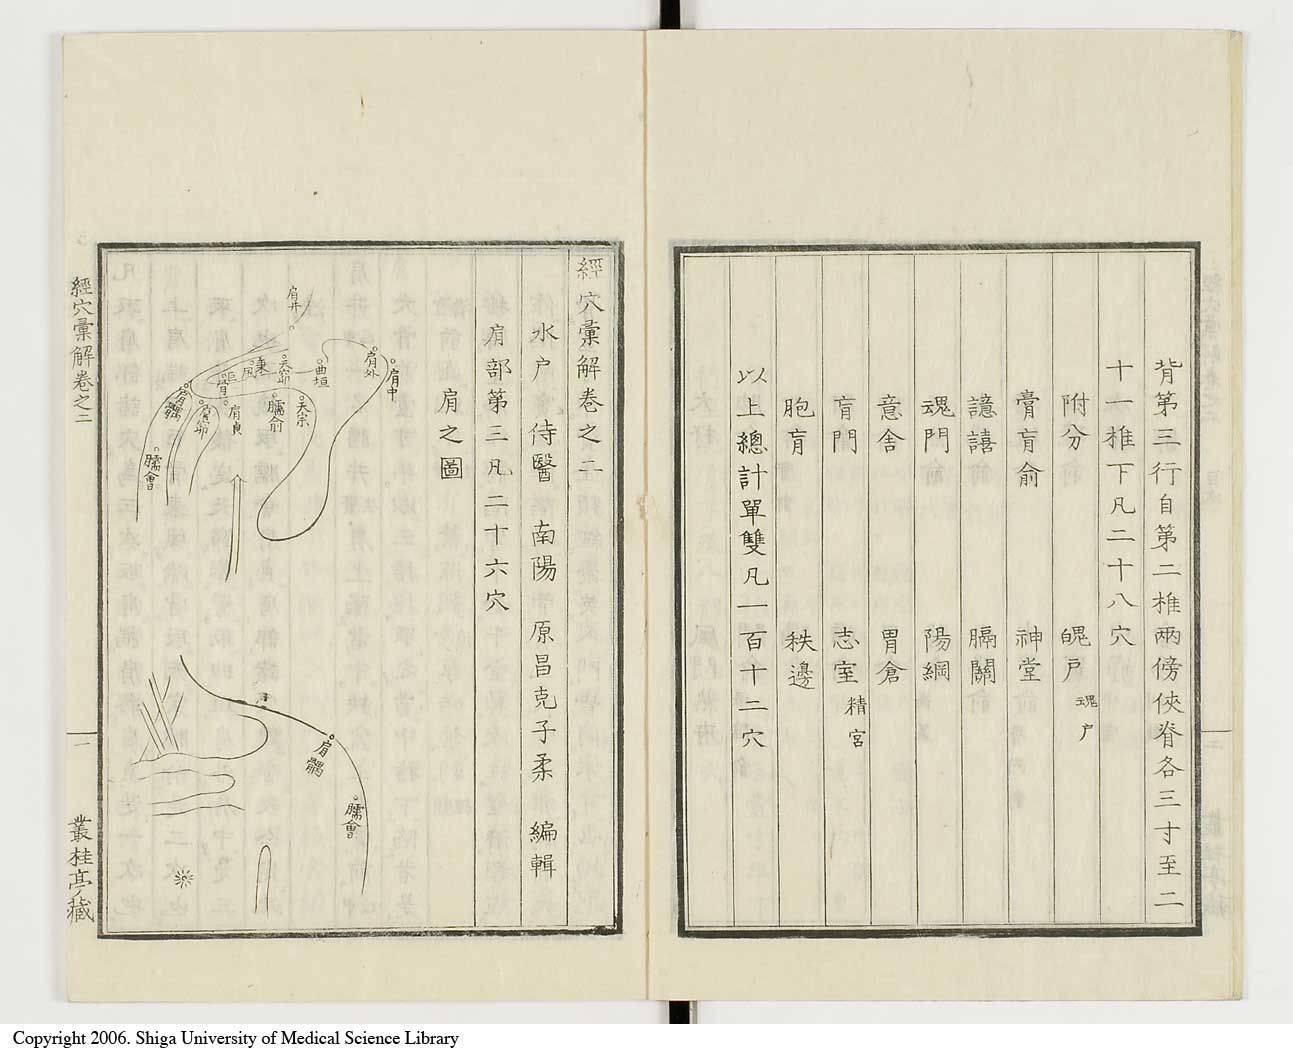 背第三行自第二椎兩傍俠脊各三寸至二
十一椎下凡二十八穴
附分 魄戸 魂戸
膏肓俞 神堂
譩譆 膈關
魂門 陽綱
意舎 胃倉
肓門 志室 精宮
胞肓 秩邊
以上總計單雙凡一百十二穴
經穴彙解卷之二
水戸侍醫 南陽 原昌克子柔 編輯
肩部第三凡二十六穴
肩之圖
肩井
肩中
肩外
曲垣
天宗
天窌
臑俞
秉風
巨骨
肩貞
肩窌
肩髃
臑會
肩髃
臑會
經穴彙解卷之二
一
叢桂亭藏
Copyright 2006. Shiga University of Medical Science Library